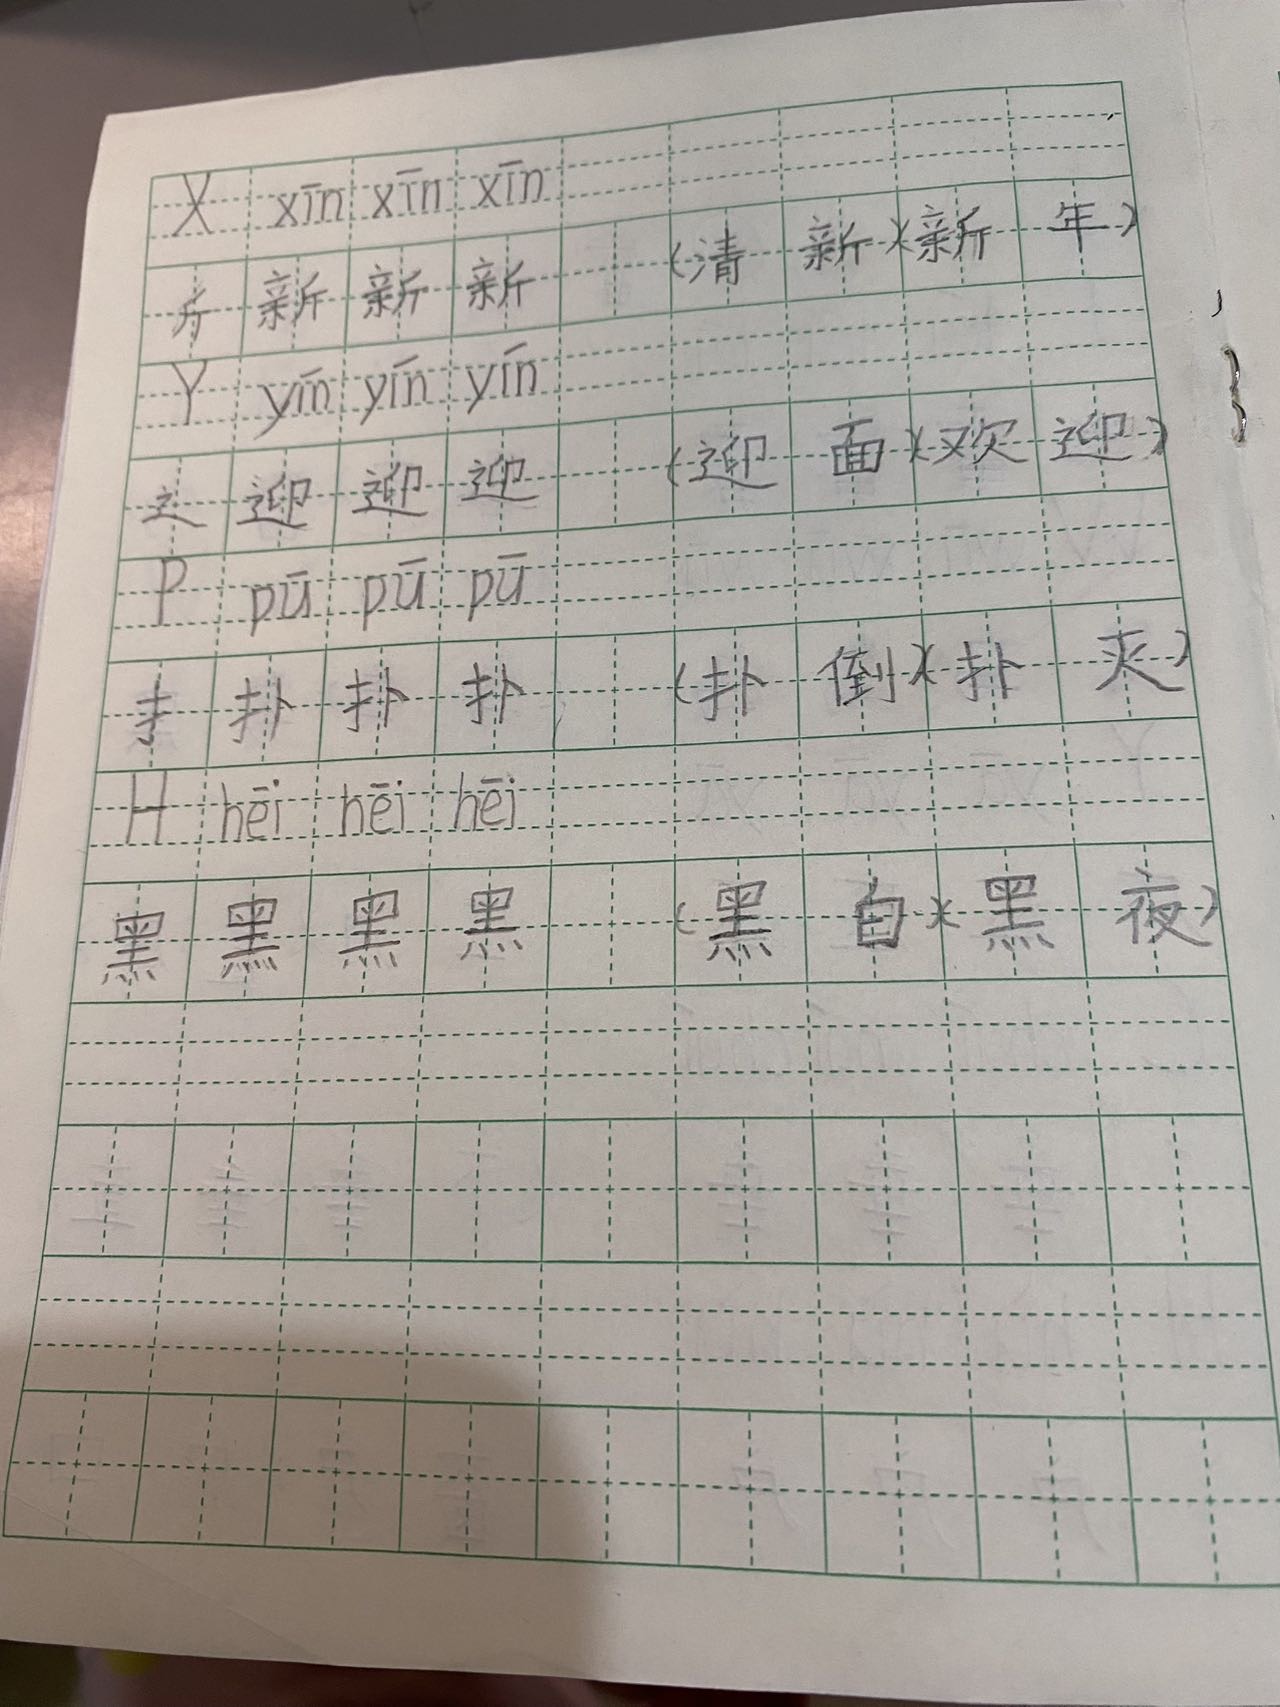 X xīn xīn xīn
斤 新 新 新 (清 新)(新 年)
Y yín yín yín
辶 迎 迎 迎 (迎 面)(欢 迎)
P pū pū pū
扌 扑 扑 扑 (扑 倒)(扑 灭)
H hēi hēi hēi
黑 黑 黑 黑 (黑 白)(黑 夜)